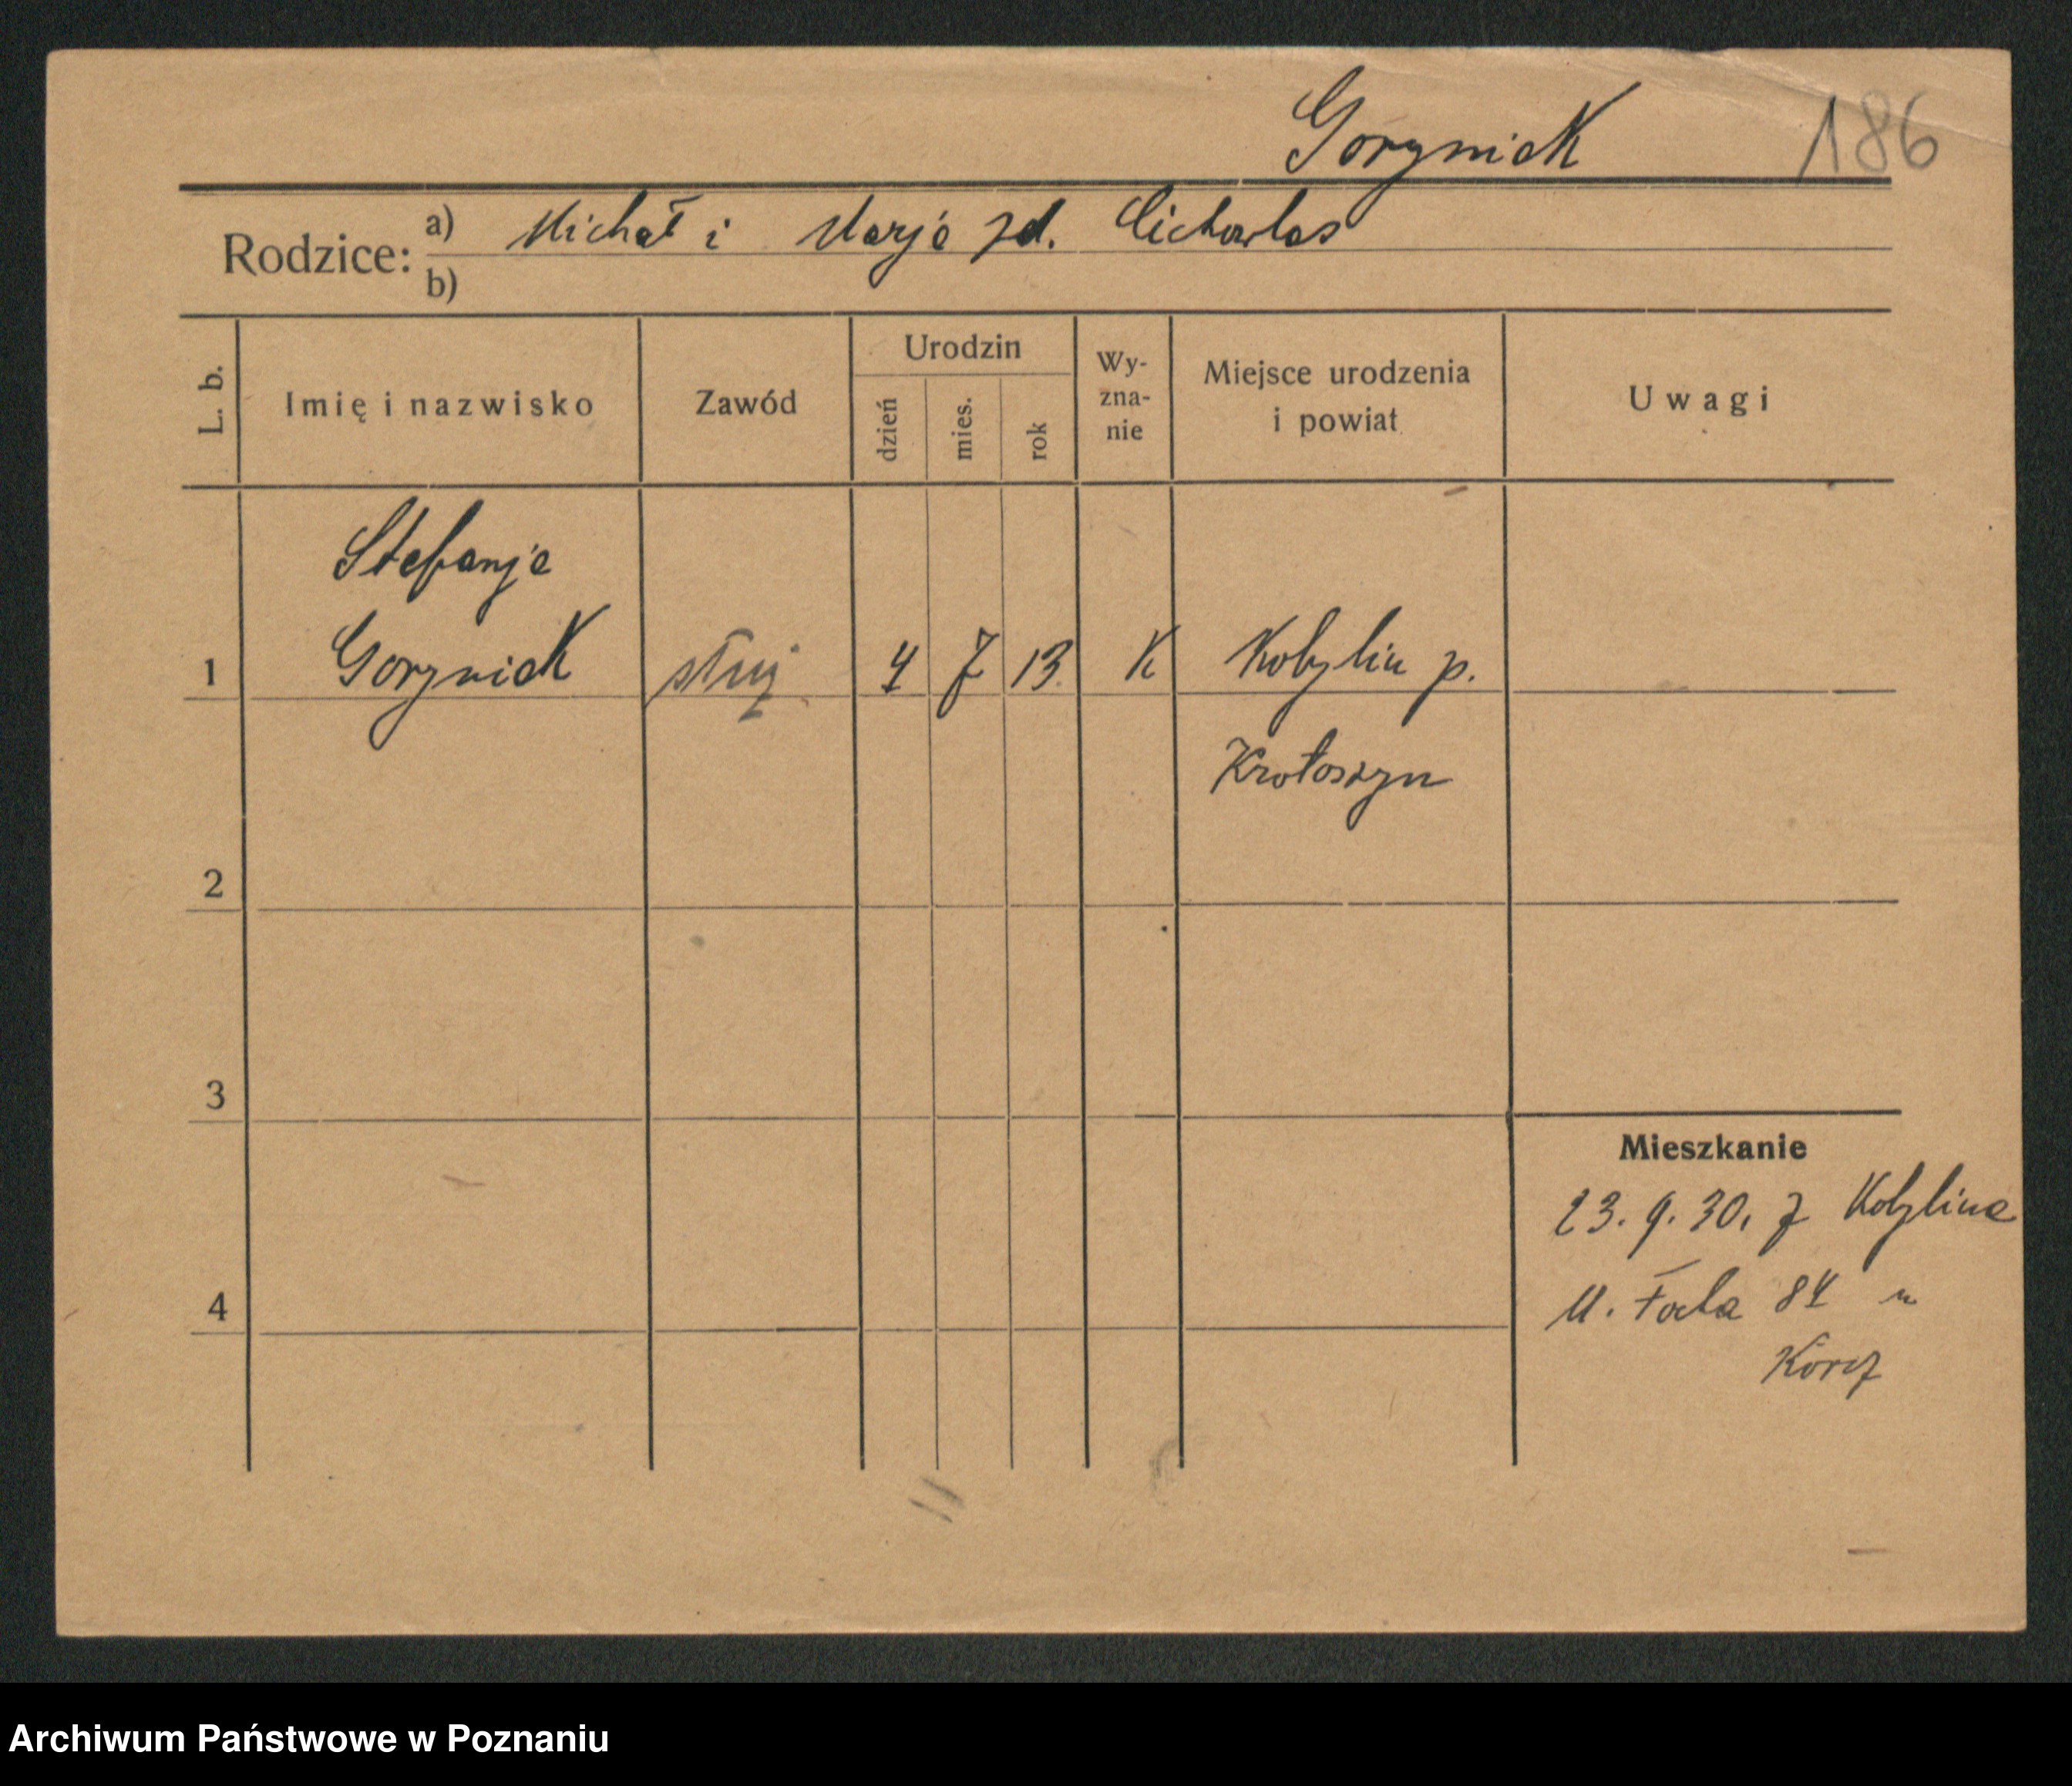 Goryniak 186
Rodzice: a) Michał i Marja zd. Cichowlas
b)
L. b. Imię i nazwisko Zawód Urodzin dzień mies. rok Wy-zna-nie Miejsce urodzenia i powiat Uwagi
Stefanja
1 Goryniak służ 4 7 13 K Kobylin p.
Krotoszyn
2
3
Mieszkanie
23. 9. 30. z Kobylina
84 u
4
Archiwum Państwowe w Poznaniu